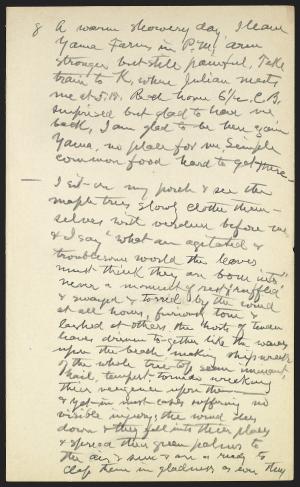 8 A warm showery day, I leave
Yama Farms in P.M. arm
stronger but still painful. Take
train to K, where Julian meets
me at 5.18. Reach home 6 1/2. C.B.
surprised but glad to have me
back, I am glad to be here again
Yama, no place for me. Simple
common food hard to get there.
— I sit on my porch & see the
maple trees slowly clothe them-
selves with verdure before me
& I say "what an agitated &
troublesome world the leaves
must think they are born into"
never a moment of rest, ruffled
& swayed & tossed by the wind
at all hours, furious, torn &
lashed at others, the hosts of tender
leaves driven together like the waves
upon the beach making shipwreck
of the whole tree-top seem imminent,
Hail, tempest, tornado wreaking
their vengeance upon them
& yet in most cases suffering no
visible injury; the wind dies
down & they fall into their places
& spread their green palms to
the air & sun & are as ready to
clap them in gladness as ever they